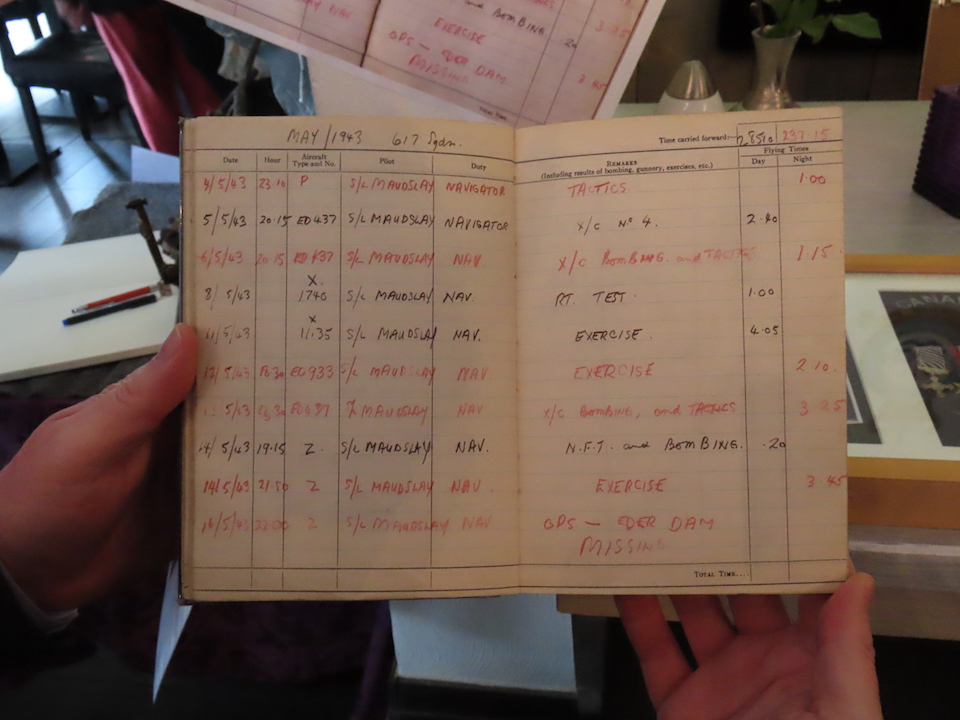 AND BOMBING. 20 3 25
EXERCISE
OPS — EDER DAM 3.45
MISSING
MAY / 1943 617 Sqdn. Time carried forward:— 285.10 237.15
Flying Times
Date Hour Aircraft Type and No. Pilot Duty REMARKS (Including results of bombing, gunnery, exercises, etc.) Day Night
4/5/43 23.10 P S/L MAUDSLAY NAVIGATOR TACTICS 1.00
5/5/43 20.15 ED437 S/L MAUDSLAY NAVIGATOR X/C Nº 4. 2.40
6/5/43 20.15 ED 437 S/L MAUDSLAY NAV. X/C BOMBING. and TACTICS 1.15
X.
8/5/43 1740 S/L MAUDSLAY NAV. RT. TEST. 1.00
X
11/5/43 11.35 S/L MAUDSLAY NAV. EXERCISE. 4.05
5/43 ED933 S/L MAUDSLAY NAV EXERCISE 2.10.
5/43 MAUDSLAY NAV X/C BOMBING, and TACTICS 3.25
14/5/43 19.15 Z. S/L MAUDSLAY NAV. N.F.T. and BOMBING. .20
14/5/43 21.50 Z S/L MAUDSLAY NAV. EXERCISE 3.45
16/5/43 Z S/L MAUDSLAY NAV OPS — EDER DAM
MISSING
TOTAL TIME....
CANADA